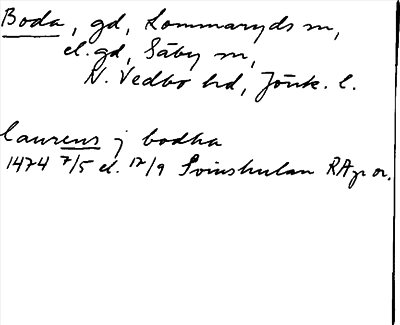 Boda, gd, Lommaryds sn,
el. gd, Säby sn,
N. Vedbo hd, Jönk. l.
laurens j bodha
1474 7/5 el. 12/9 Svinhulan RAp or.